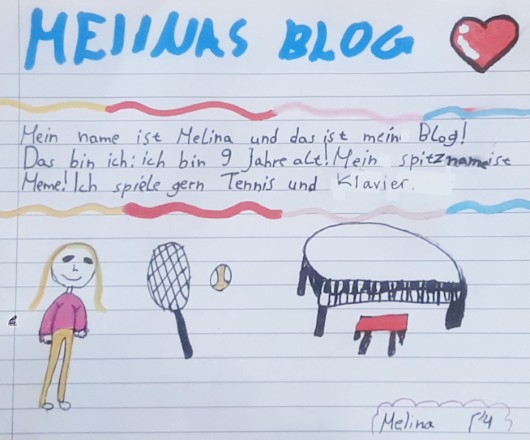 MElINAS BLOG
Mein name ist Melina und das ist mein Blog!
Das bin ich: ich bin 9 Jahre alt! Mein spitzname ist
Meme! Ich spiele gern Tennis und Klavier.
Melina